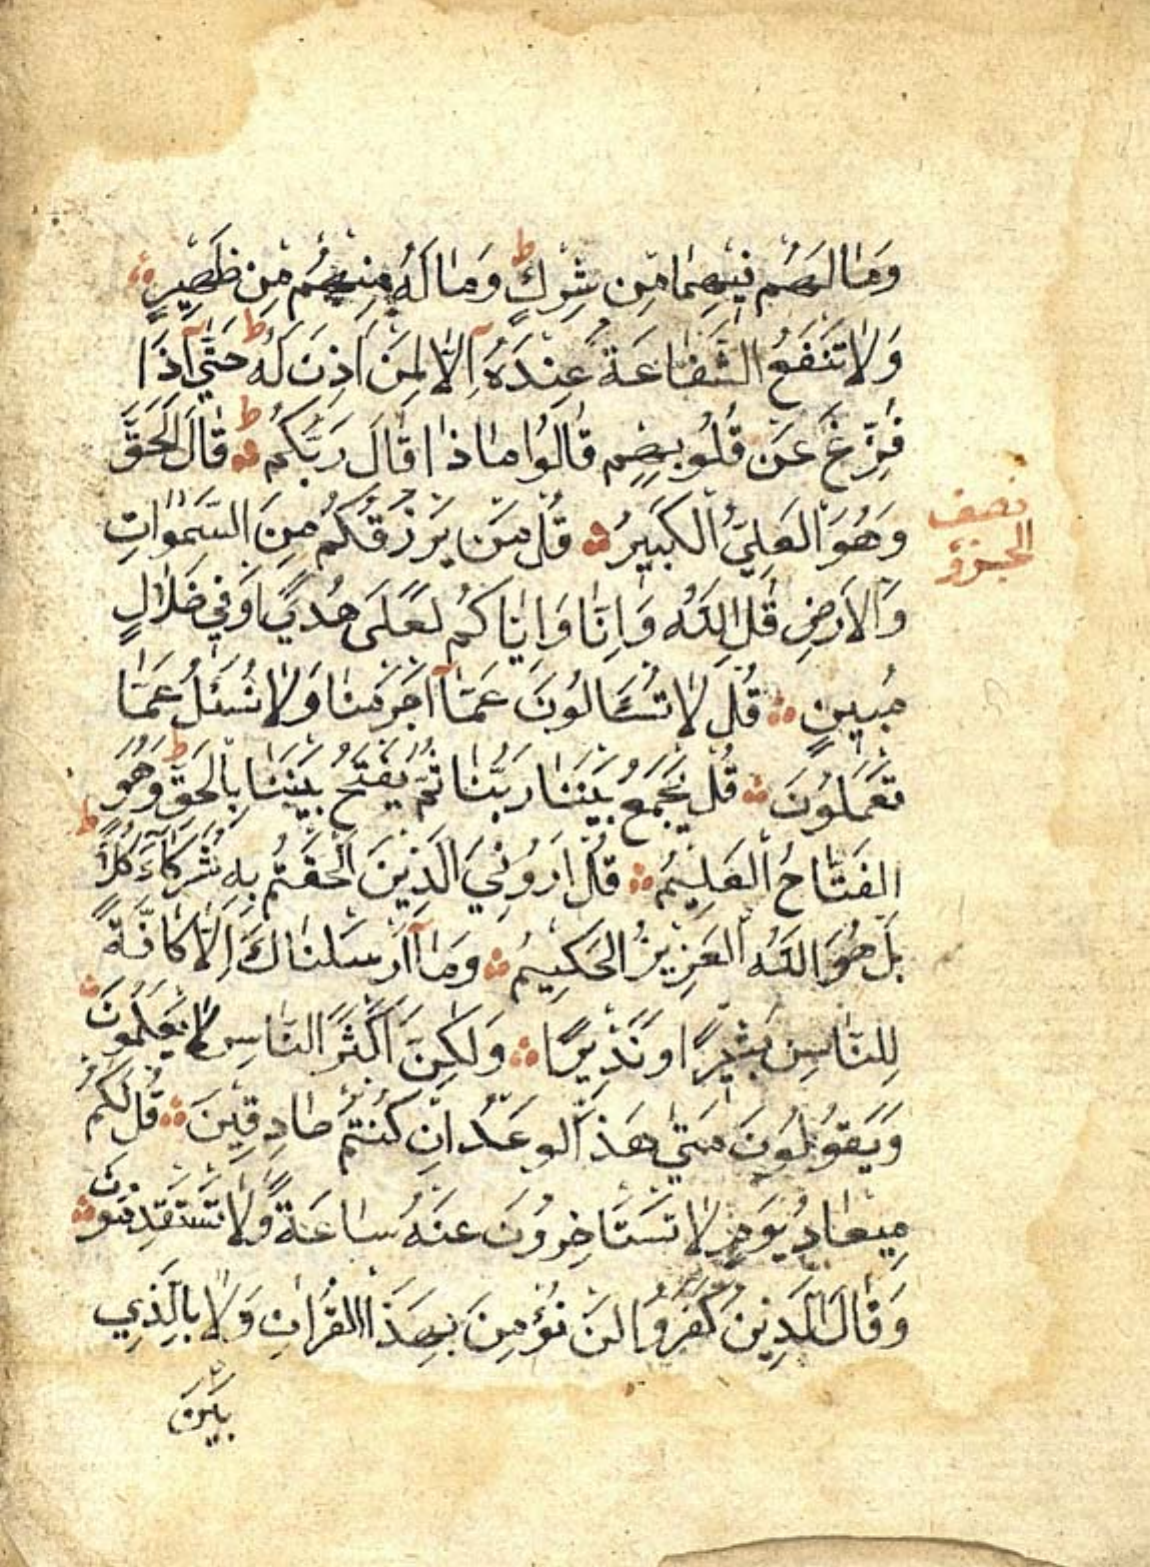 وَمَا لَهُم فِيهِمَا مِن شِركٍ ط وَمَا لَهُ مِنهُم مِن ظَهِيرٍ
وَلَا تَنفَعُ الشَّفَاعَةُ عِندَهُ اِلَّا لِمَن اَذِنَ لَهُ ط حَتَّى اِذَا
فُزِّعَ عَن قُلُوبِهِم قَالُوا مَاذَا قَالَ رَبُّكُم ط قَالَ الحَقَّ
وَهُوَ العَلِيُّ الكَبِيرُ قُل مَن يَرزُقُكُم مِنَ السَّمٰوَاتِ
وَالاَرضِ قُلِ اللَّهُ وَاِنَّا وَاِيَّاكُم لَعَلَى هُدًى اَو فِي ضَلَالٍ
مُبِينٍ قُل لَا تُسـَٔالُونَ عَمَّا اَجرَمنَا وَلَا نُسئَلُ عَمَّا
تَعمَلُونَ قُل يَجمَعُ بَينَنَا رَبُّنَا ثُمَّ يَفتَحُ بَينَنَا بِالحَقِّ ط وَهُوَ
الفَتَّاحُ العَلِيمُ قُل اَرُونِيَ الَّذِينَ اَلحَقتُم بِهِ شُرَكَآءَ كَلَّا ط
بَل هُوَ اللَّهُ العَزِيزُ الحَكِيمُ وَمَا اَرسَلنَاكَ اِلَّا كَافَّةً
لِلنَّاسِ بَشِيرًا وَنَذِيرًا وَلَكِنَّ اَكثَرَ النَّاسِ لَا يَعلَمُونَ
وَيَقُولُونَ مَتَى هَذَا الوَعدُ اِن كُنتُم صَادِقِينَ قُل لَكُم
مِيعَادُ يَومٍ لَا تَستَاخِرُونَ عَنهُ سَاعَةً وَلَا تَستَقدِمُونَ
وَقَالَ الَّذِينَ كَفَرُوا لَن نُؤمِنَ بِهَذَا القُرانِ وَلَا بِالَّذِي
بَينَ
نصف
الجزؤ